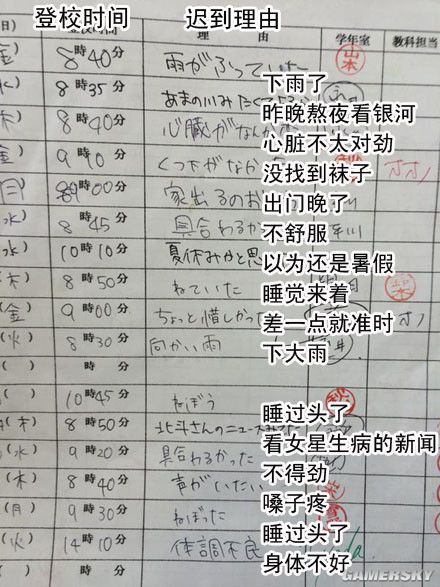 登校时间 迟到理由
日) 登校時間 理由 学年室 教科担当
金) 8時40分 雨がふっていた 山本 下雨了
水) 8時35分 あまの川みたくて 昨晚熬夜看银河
木) 8時40分 心臓がなんか 心脏不太对劲
金) 9時10分 くつ下がなかった 没找到袜子
月) 9時00分 家出るのお 出门晚了
(水) 8時45分 具合わるか 不舒服
(水) 10時10分 夏休みかと思 以为还是暑假
(木) 8時50分 ねていた 睡觉来着
(金) 9時00分 ちょっと惜しかった 差一点就准时
(火) 8時30分 向かい雨 下大雨
( ) 時 分
( ) 10時45分 ねぼう 睡过头了
(木) 8時50分 北斗さんのニュースみてた 看女星生病的新闻
(水) 9時20分 具合わるかった 不得劲
(木) 8時40分 声がいたい 嗓子疼
(月) 9時30分 ねぼった 睡过头了
(火) 14時10分 体調不良 身体不好
( ) 時 分
GAMERSKY